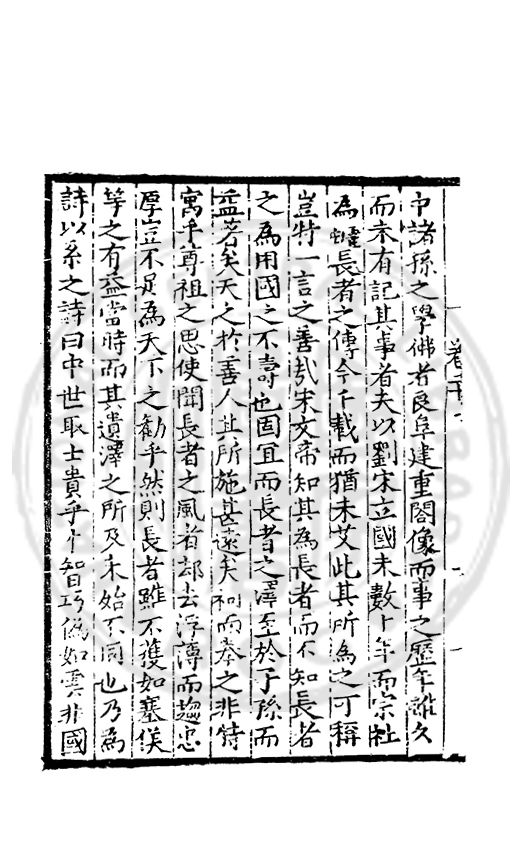 中諸孫之學佛者良阜建重閣像而事之歷年雖久
而未有記其事者夫以劉宋立國未數十年而宗社
為墟長者之傳今千載而猶未艾此其所為之可稱
豈特一言之善哉宋文帝知其為長者而不知長者
之為用國之不壽也固宜而長者之澤至於子孫而
益著矣天之於善人其所施甚遠矣祠而奉之非特
寓乎尊祖之思使聞長者之風者却去浮薄而趨忠
厚豈不足為天下之勸乎然則長者雖不獲如塞侯
等之有益當時而其遺澤之所及未始不同也乃為
詩以系之詩曰中世取士貴乎才智巧偽如雲非國
卷十